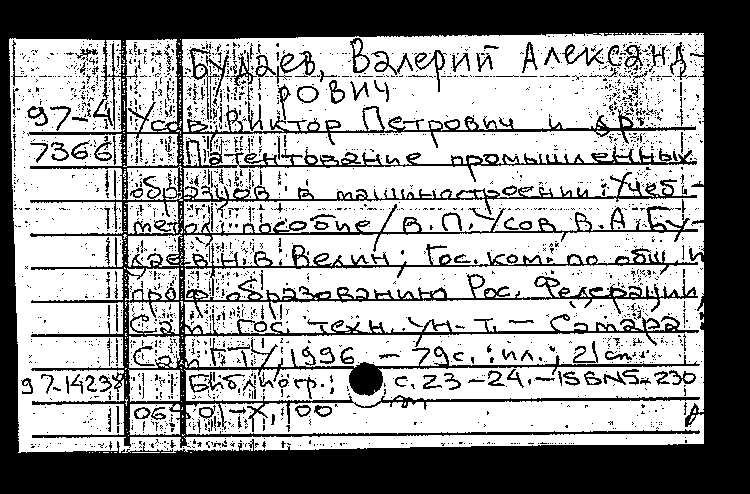 Будаев, Валерий Александ-
рович
97-4 Усов, Виктор Петрович и др.
7366 Патентование промышленных
образцов в машиностроении: Учеб.-
метод. пособие / В.П. Усов, В.А. Бу-
даев, Н.В. Велин; Гос. ком. по общ. и
проф. образованию Рос. Федерации,
Сам. гос. техн. ун-т. — Самара:
СамГТУ, 1996. — 79с.: ил.; 21см.
97-14238 Библиогр.: с. 23-24. — ISBN 5-230-
Х, 100